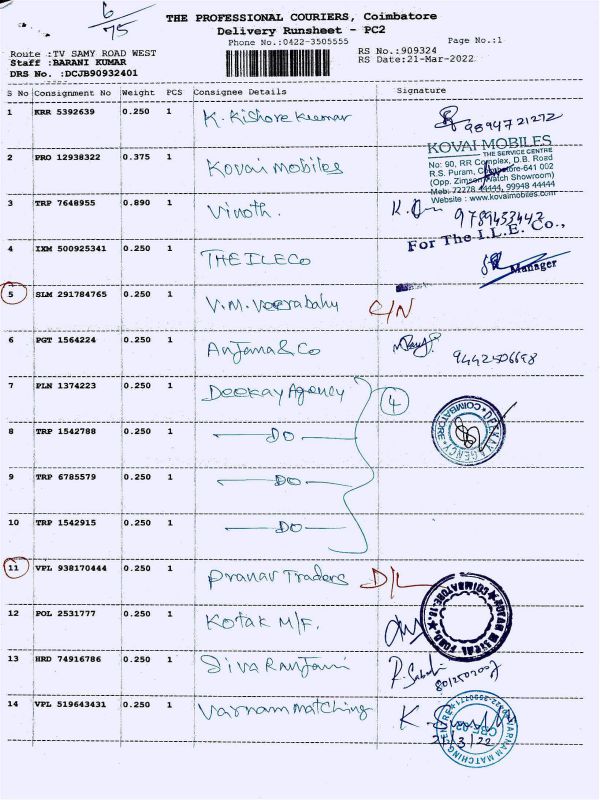 6/75
THE PROFESSIONAL COURIERS, Coimbatore
Delivery Runsheet - PC2
Phone No.:0422-3505555 Page No.:1
Route :TV SAMY ROAD WEST RS No.:909324
Staff :BARANI KUMAR RS Date:21-Mar-2022
DRS No. :DCJB90932401
S No Consignment No Weight PCS Consignee Details Signature
1 KRR 5392639 0.250 1 K. Kishore Kumar 9894721272
2 PRO 12938322 0.375 1 Kovai Mobiles
KOVAI MOBILES
THE SERVICE CENTRE
No: 90, RR Complex, D.B. Road
R.S. Puram, Coimbatore-641 002
(Opp. Zimson Watch Showroom)
Mob: 72278 44444, 99948 44444
Website : www.kovaimobiles.com
3 TRP 7648955 0.890 1 Vinoth. 9789453442
For The I.L.E. Co.,
4 IXM 500925341 0.250 1 THE ILE Co
Manager
5 SLM 291784765 0.250 1 V.M. Veerabahu C/N
6 PGT 1564224 0.250 1 Anjana & Co 9442506698
7 PLN 1374223 0.250 1 Deekay Agency 4
DEEKAY AGENCY COIMBATORE
8 TRP 1542788 0.250 1 DO
9 TRP 6785579 0.250 1 DO
10 TRP 1542915 0.250 1 DO
11 VPL 938170444 0.250 1 Pranav Traders D/L
12 POL 2531777 0.250 1 Kotak M/F.
13 HRD 74916786 0.250 1 Sivaranjani
14 VPL 519643431 0.250 1 Varnam Matching
VARNAM MATCHING CENTRE
21/3/22